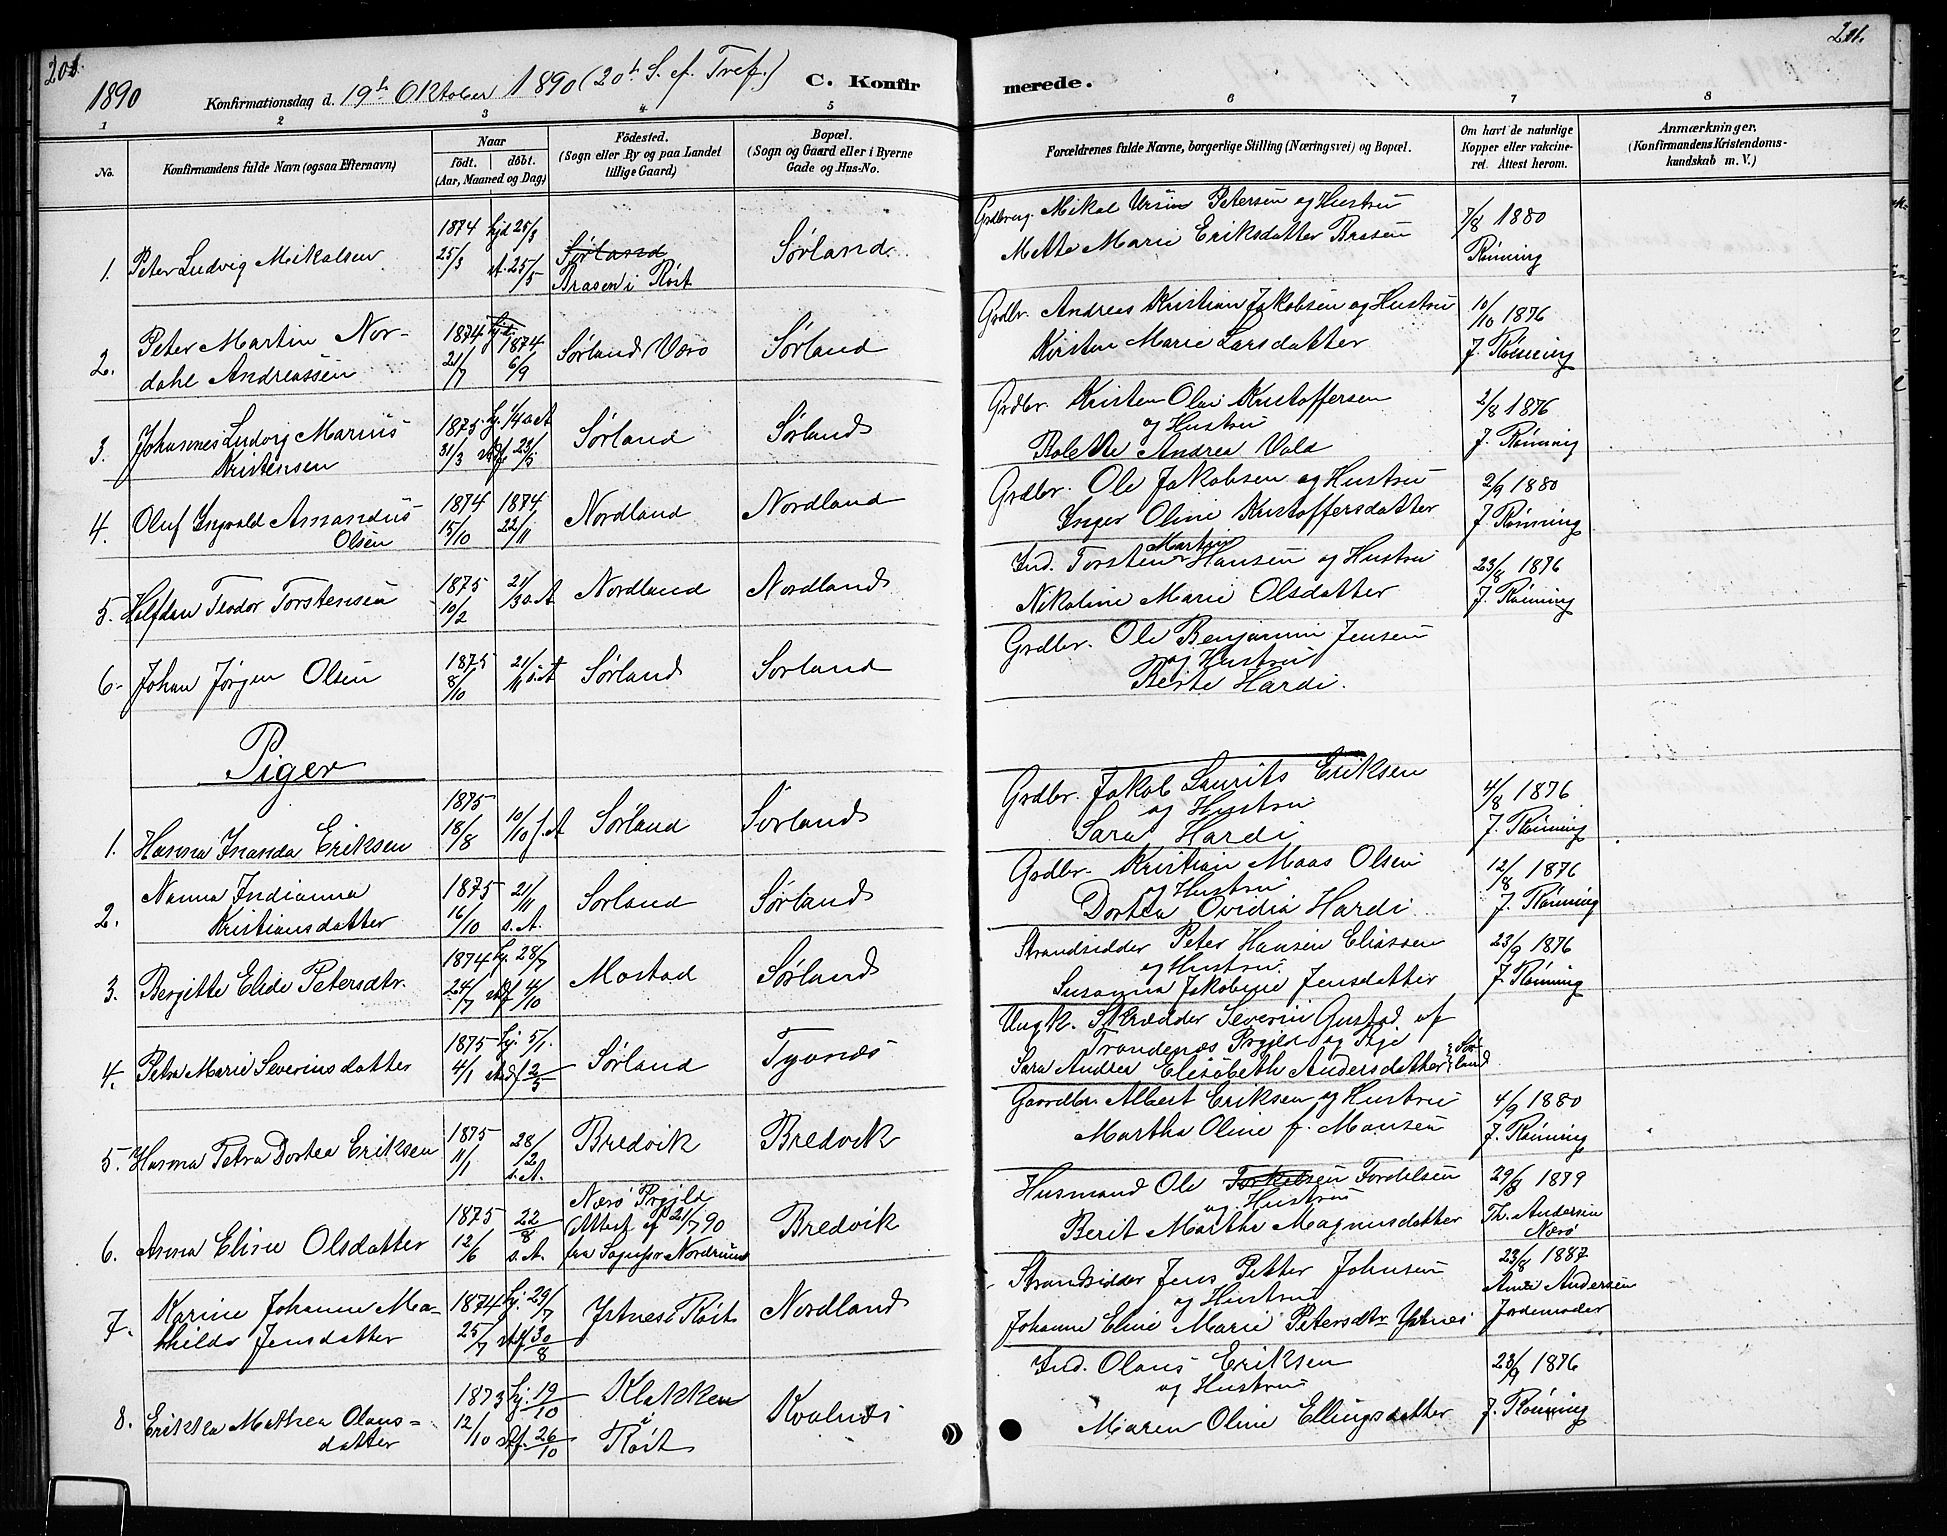 201.
1890
Konfirmationsdag d. 19de Oktober 1890 (20de S. ef. Tref.)
C. Konfirmerede.
201.
1 2 3 4 5 6 7 8
No.
Konfirmandens fulde Navn (ogsaa Efternavn)
Naar
födt. döbt.
(Aar, Maaned og Dag)
Födested.
(Sogn eller By og paa Landet
tillige Gaard)
Bopæl.
(Sogn og Gaard eller i Byerne
Gade og Hus-No.
Forældrenes fulde Navne, borgerlige Stilling (Næringsvei) og Bopæl.
Om havt de naturlige
Kopper eller vakcine-
ret. Attest herom.
Anmærkninger.
(Konfirmandens Kristendoms-
kundskab m. V.)
1. Peter Ludvig Mikalsen
1874 25/3
hjd 25/3 st. 25/5
Sørland
Brasen i Röst
Sørland.
Grdbrug. Mikal Ursin Petersen og Hustru
Mette Marie Eriksdatter Brasen
7/8 1880
Rönning
2. Peter Martin Nor-
dahl Andreassen
1874 21/7
1874 6/9
Sørland Værö
Sørland
Grdbr. Andreas Kristian Jakobsen og Hustru
Kirsten Marie Larsdatter
10/10 1876
J. Rönning
3. Johannes Ludvig Marius
Kristensen
1875 31/3
Sørland
Sørland
Grdbr. Kristen Olai Kristoffersen
og Hustru
Rolette Andrea Vold
2/8 1876
J. Rönning
4. Oluf Ingvald Amandus
Olsen
1874 15/10
1874 22/11
Nordland
Nordland
Grdbr. Ole Jakobsen og Hustru
Inger Oline Kristoffersdatter
2/9 1880
J. Rönning
5. Halfdan Teodor Torstensen
1875 10/2
21/3 a. A
Nordland
Nordland
Ind. Torsten Martin Hansen og Hustru
Nikoline Marie Olsdatter
23/8 1876
J. Rönning
6. Johan Jörgen Olsen
1875 8/10
21/11 s. A
Sørland
Sørland
Grdbr. Ole Benjamin Jensen
og Hustru
Berte Hardi.
Piger
1. Hanna Inanda Eriksen
1875 18/8
10/10 s. A
Sørland
Sørland
Grdbr. Jakob Laurits Eriksen
og Hustru
Sara Hardi
4/8 1876
J. Rönning
2. Nanna Indianna
Kristiansdatter
1875 16/10
21/11 s. A.
Sørland
Sørland
Grdbr. Kristian Maas Olsen
og Hustru
Dortea Ovidia Hardi
12/8 1876
J. Rönning
3. Bergitte Elide Petersdtr.
1874 24/7
hj. 28/7 stdf 4/10
Mostad
Sørland
Strandsidder Peter Hansen Eliassen
og Hustru
Susanna Jakobine Jensdatter
23/9 1876
J. Rönning
4. Petra Marie Severinsdatter
1875 4/1
hj. 5/1. stadf 2/5
Sørland
Tyvnæs
Ungk. Skrædder Severin Gustad af
Trondenæs Prgjld og Pige
Sara Andrea Elisabeth Andersdatter Sör-
land
5. Hanna Petra Dortea Eriksen
1875 11/1
28/2 s. A.
Bredvik
Bredvik
Gaardbr. Albert Eriksen og Hustru
Martha Oline f. Monsen
4/9 1880
J. Rönning
6. Anna Elise Olsdatter
1875 12/6
22/8 s. A.
Nærö Prgjld
Attest af 21/7 90
fra Sognepr Nordrum
Bredvik
Husmand Ole Torkelsen Tordelsen
og Hustru
Berit Martha Magnusdatter
29/8 1879
Th. Andersen
Nærö
7. Karine Johanne Ma-
thilde Jensdatter
1874 25/7
hj. 29/7 stdf 30/8
Ystnes i Röst
Nordland
Strandsidder Jens Petter Johnsen
og Hustru
Johanne Eline Marie Petersdtr Ystnes
23/8 1887
Andersen
Jordemoder
8. Erikka Mathea Olaus-
datter
1873 12/10
hj. 19/10 stf. 26/10
Klakken
i
Röst
Kvalnæs
Ind. Olaus Eriksen
og Hustru
Maren Oline Ellingsdatter
23/9 1876
J. Rönning